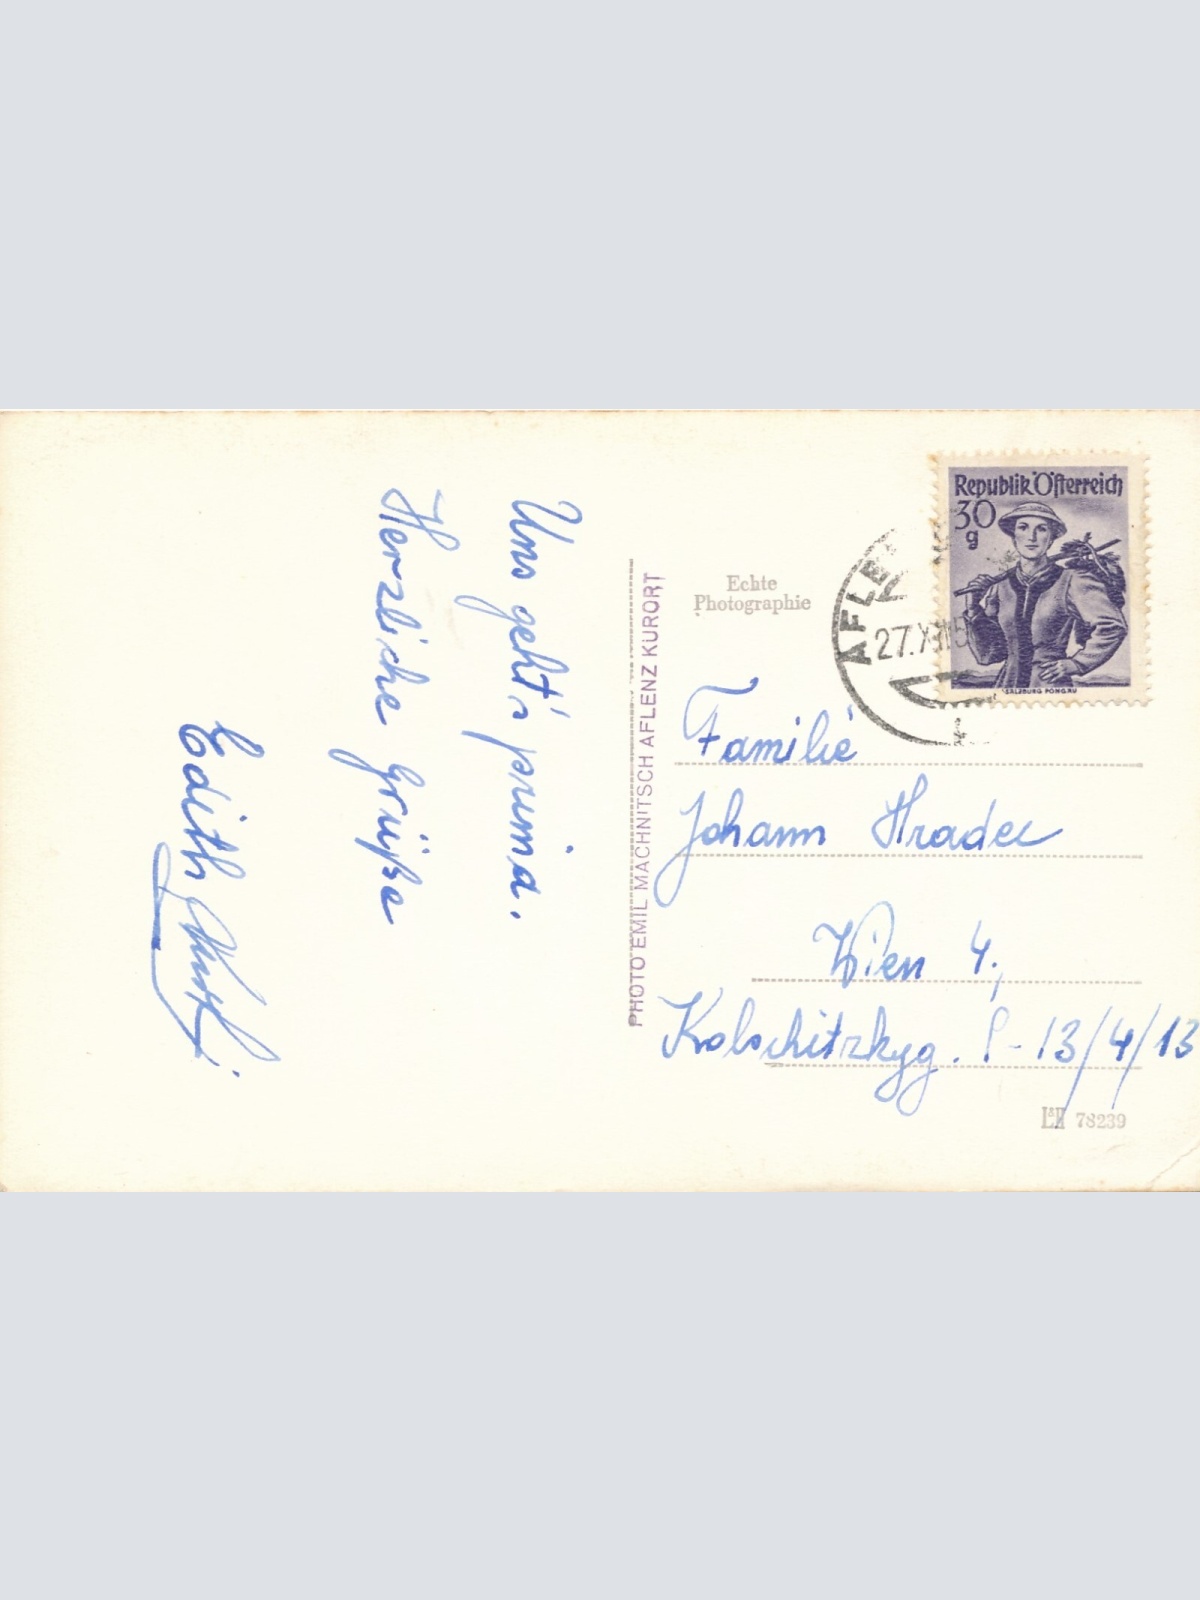 Uns geht's prima.
Herzliche Grüße
Edith
PHOTO EMIL MACHNITSCH AFLENZ KURORT
Echte
Photographie
Republik Österreich
30
g
SALZBURG PONGAU
AFLENZ
27.XII.5
Familie
Johann Hradec
Wien 4.,
Kolschitzkyg. 9-13/4/13
78239